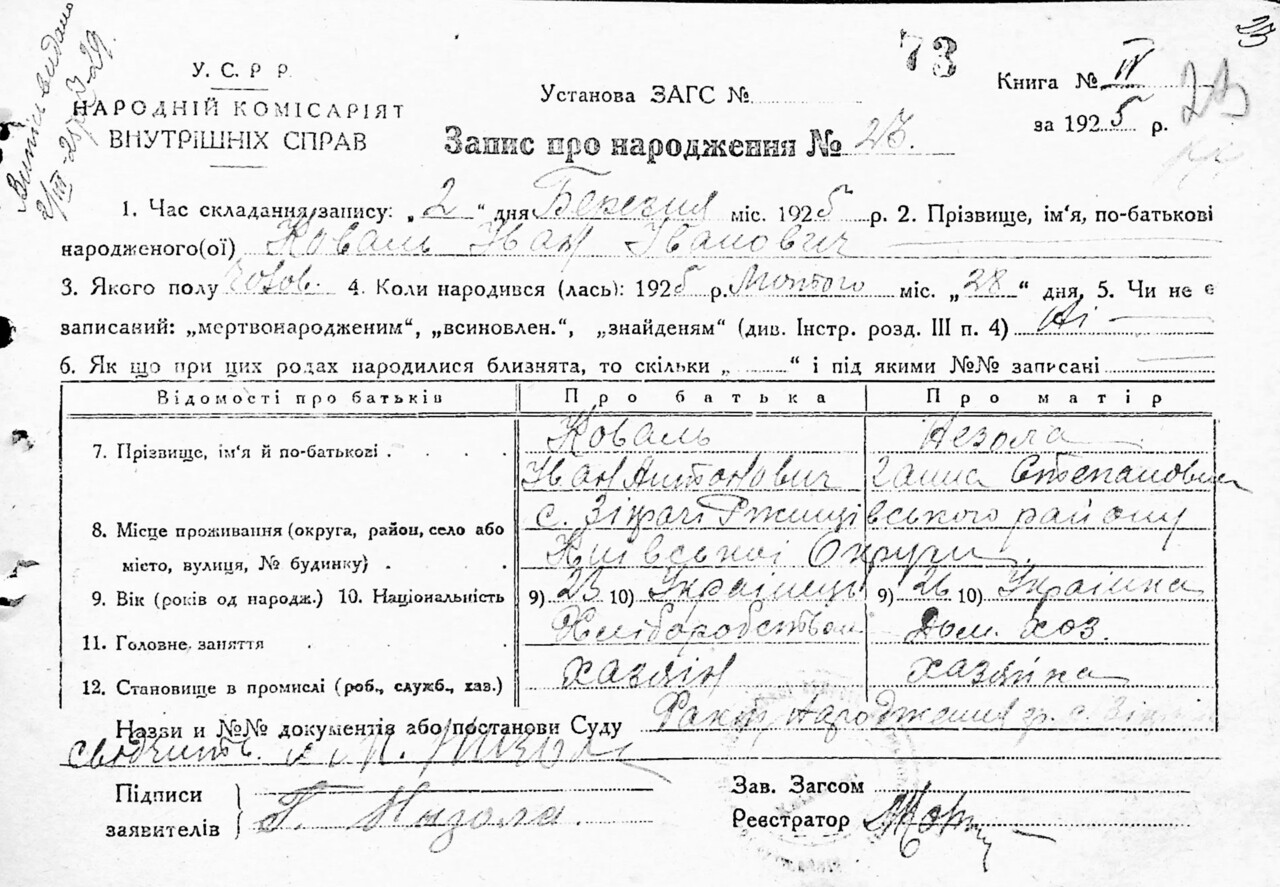 Витпис видано
2/III-25р 3-29.
У. С. Р Р.
НАРОДНІЙ КОМІСАРІЯТ
ВНУТРІШНІХ СПРАВ
73
23
Установа ЗАГС №
Книга № IV
23
за 1925 р.
Запис про народження № 23.
1. Час складання запису: „2“ дня Березня міс. 1925 р. 2. Прізвище, ім'я, по-батькові
народженого(ої) Коваль Іван Іванович
3. Якого полу чолов. 4. Коли народився (лась): 1925 р. Лютого міс. „28“ дня, 5. Чи не є
записаний: „мертвонародженим“, „всиновлен.“, „знайденям“ (див. Інстр. розд. III п. 4) Ні
6. Як що при цих родах народилися близнята, то скільки „ “ і під якими №№ записані
Відомості про батьків Про батька Про матір
7. Прізвище, ім'я й по-батькові . . . . Коваль Незола
Іван Антонович Ганна Степановна
8. Місце проживання (округа, район, село або с. Зікрачі Ржищівського району
місто, вулиця, № будинку) . Київської Округи
9. Вік (років од народж.) 10. Національність 9) 23 10) Українець 9) 26 10) Українка
11. Головне заняття Хліборобством Дом. хоз.
12. Становище в промислі (роб., служб., хаз.) хазяїн хазяйка
Назви и №№ документів або постанови Суду Факт народження гр. с.
свідчить.
Підписи
заявителів
Г. Низола.
Зав. Загсом
Реєстратор